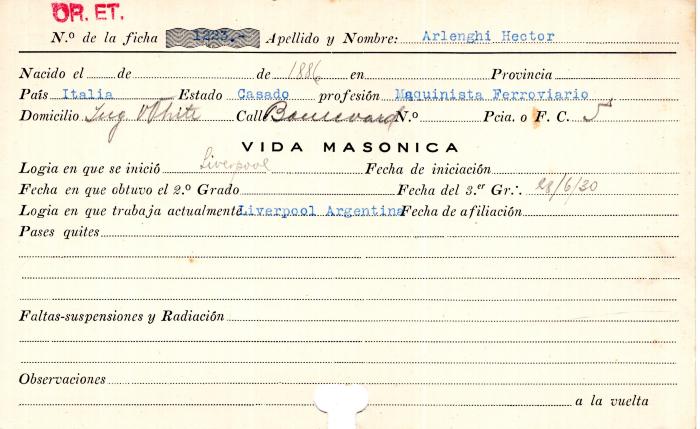 OR. ET.
N.º de la ficha 1223.- Apellido y Nombre: Arlenghi Hector
Nacido el de de 1886 en Provincia
País Italia Estado Casado profesión Maquinista Ferroviario
Domicilio Ing White Call Boulevard N.º Pcia. o F. C. 5
VIDA MASONICA
Logia en que se inició Liverpool Fecha de iniciación
Fecha en que obtuvo el 2.º Grado Fecha del 3.er Gr∴ 28/6/30
Logia en que trabaja actualmente Liverpool Argentina Fecha de afiliación
Pases quites
Faltas-suspensiones y Radiación
Observaciones
a la vuelta